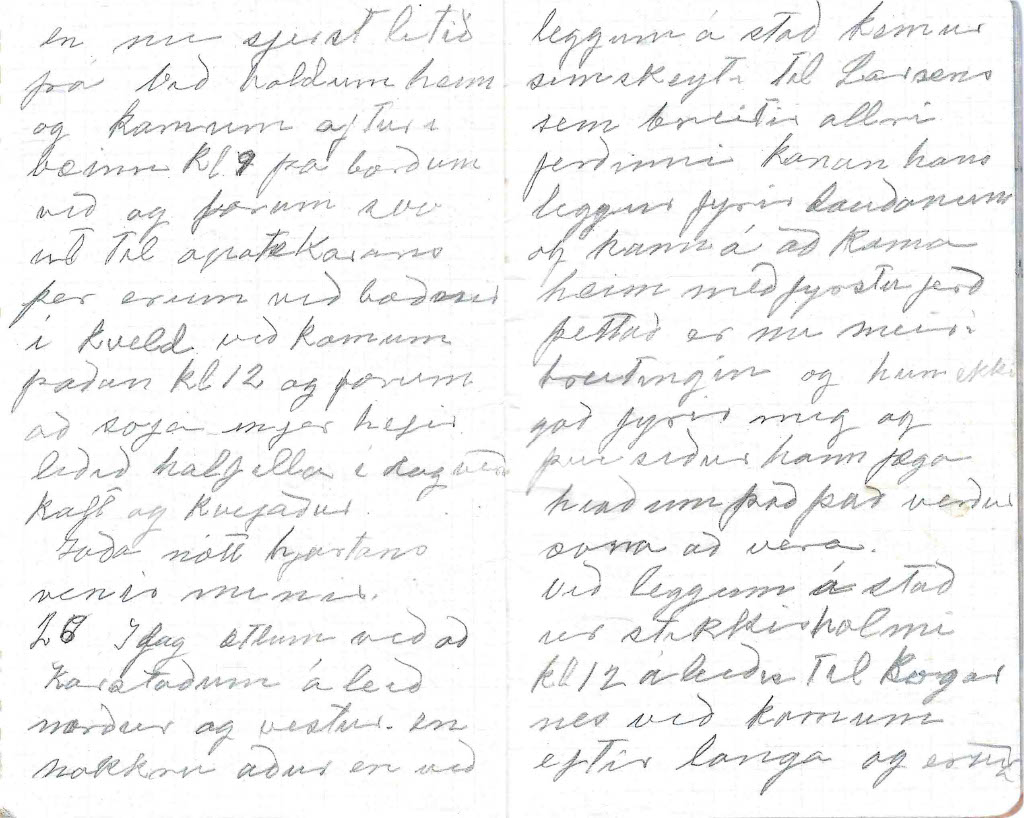 en nu sjerst litið
frá Við holdum heim
og komum aftur i
bæinn kl 9 þá borðum
við og forum svo
ut til apotekarans
þer erum við boðnir
i kveld við komum
þaðan kl 12 og forum
að sofa mjer hefir
liðið halfilla i dag
kalt og kvefaður
Goða nótt hjartans
venir minir.
28 I dag ætlum við að
Karstaðum á leið
norður og vestur. en
nokkru aður en við
leggum á stað kemur
simskeyti til Larsens
sem breitir allri
ferðinni konan hans
leggur fyrir dauðanum
og hann á að koma
heim með fyrstu ferð
þettað er nu meiri
breitingin og hun ekki
goð fyrir mig og
þvi siður hann
hvað um það það verður
sona að vera.
við leggum á stað
ur stikkisholmi
kl 12 áleiðis til Borgar
nes við komum
eftir langa og